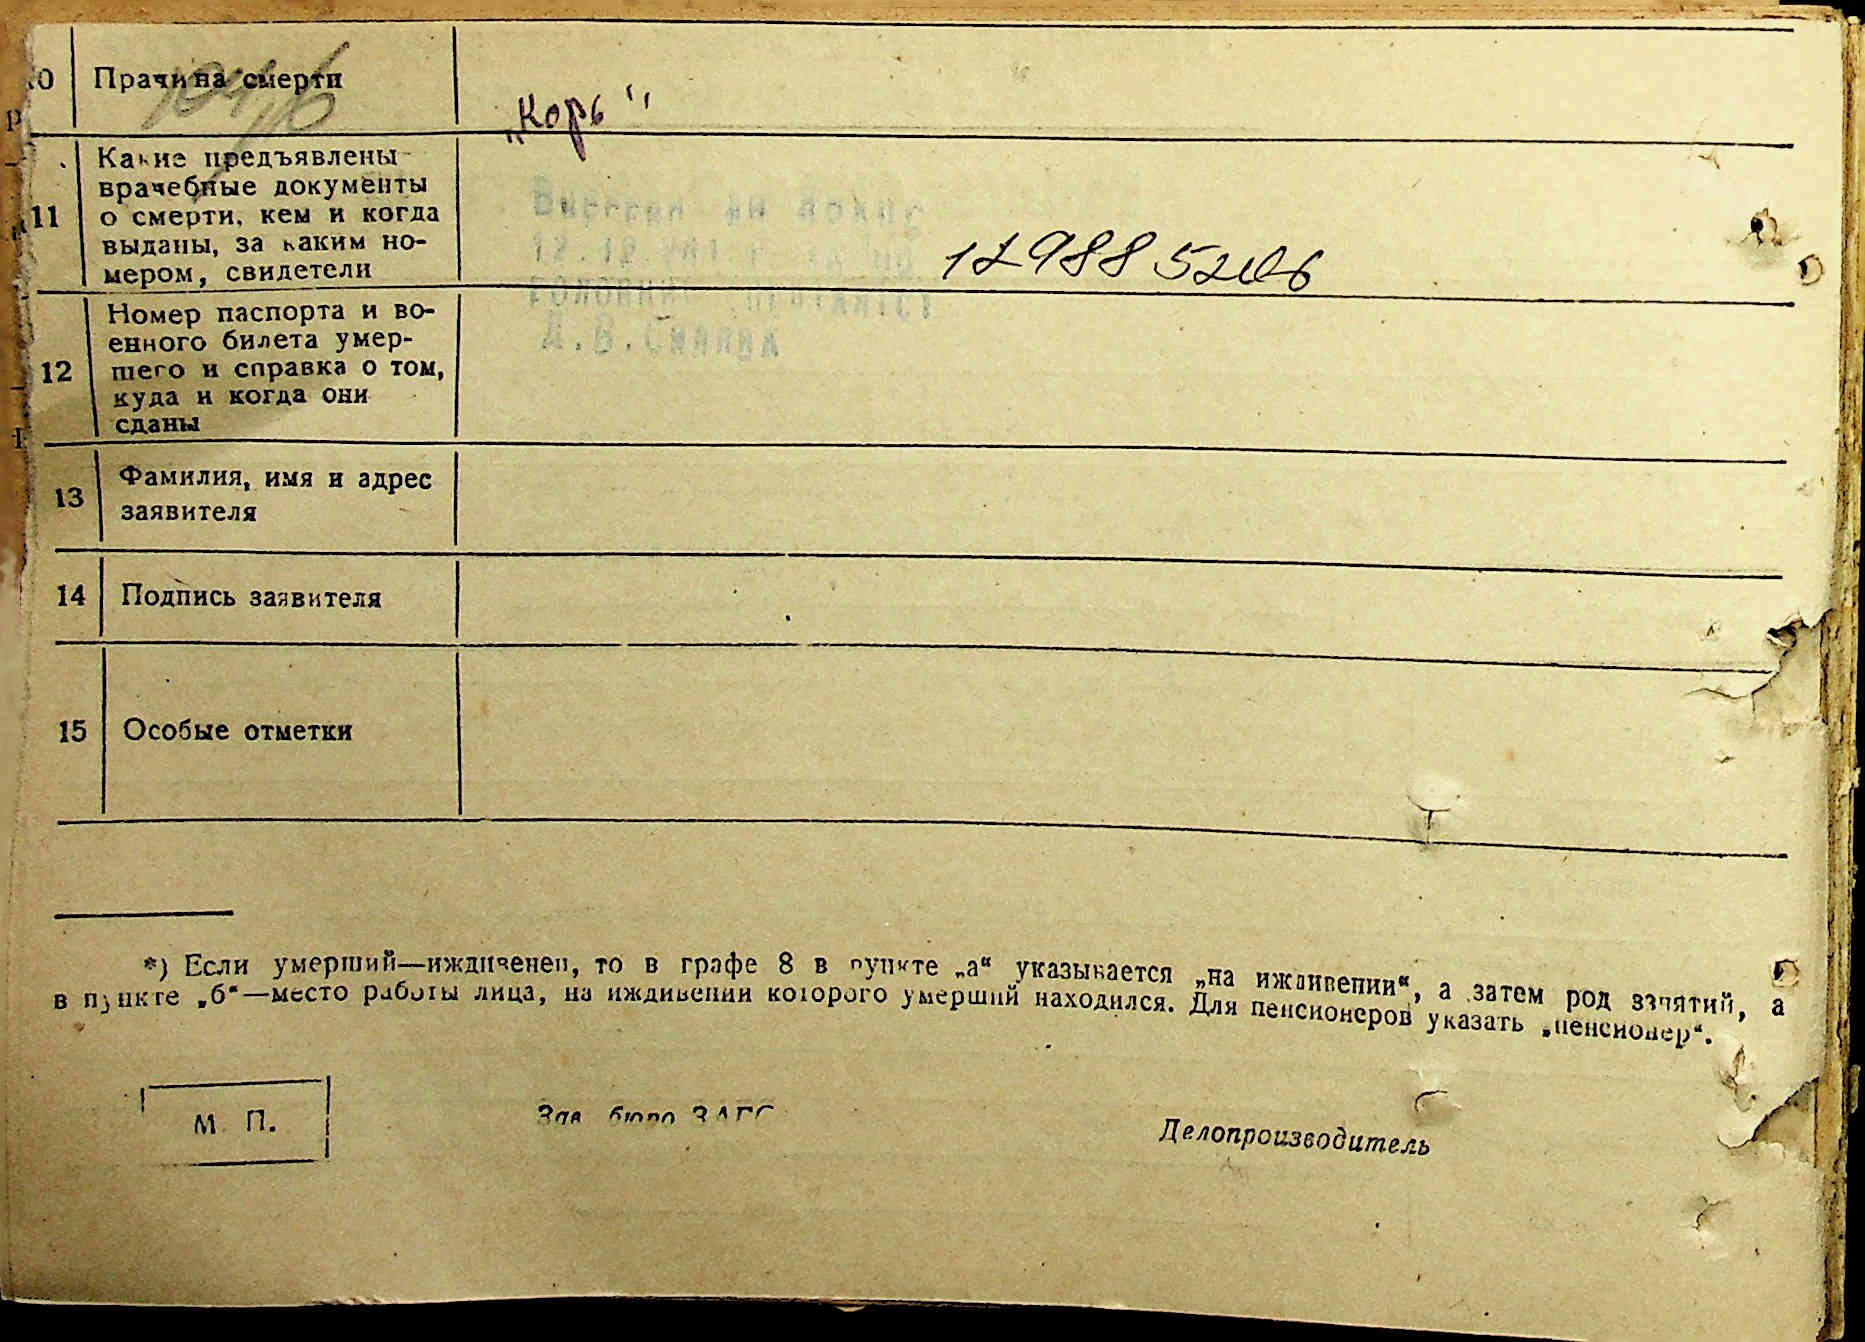 Прачина смерти
„Корь"
11
Какие предъявлены
врачебные документы
о смерти, кем и когда
выданы, за каким но-
мером, свидетели
12
Номер паспорта и во-
енного билета умер-
шего и справка о том,
куда и когда они
сданы
13
Фамилия, имя и адрес
заявителя
14
Подпись заявителя
15
Особые отметки
*) Если умерший—иждивенец, то в графе 8 в пункте „а“ указывается „на иждивении“, а затем род занятий, а
в пункте „б“—место работы лица, на иждивении которого умерший находился. Для пенсионеров указать „пенсионер“.
М. П.
Зав. бюро ЗАГС
Делопроизводитель